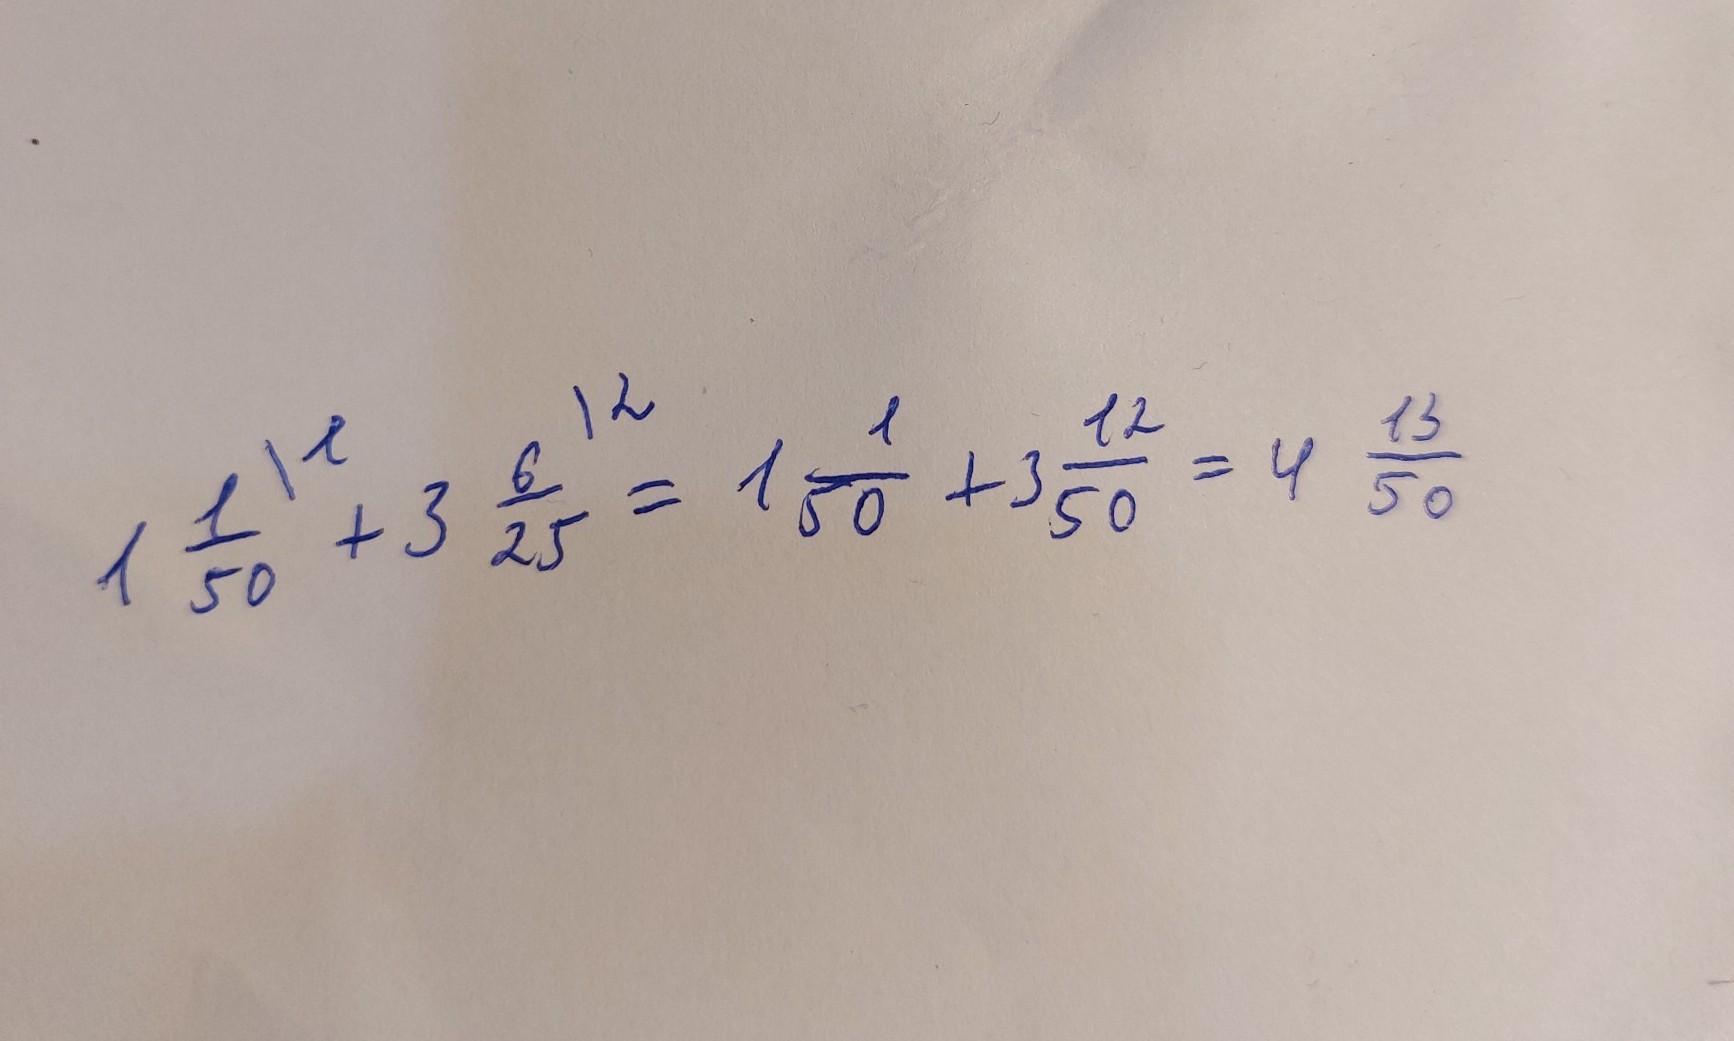 1 1/50 \1 + 3 6/25 \2 = 1 1/50 + 3 12/50 = 4 13/50